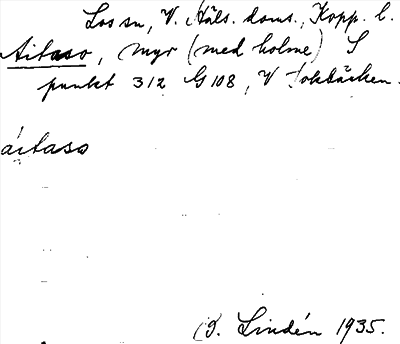 Los sn, V. Häls. doms., Kopp. l.
Aitaso, myr (med holme) S
punkt 312 G 108, V Lokbäcken.
áitaso
B. Lindén 1935.